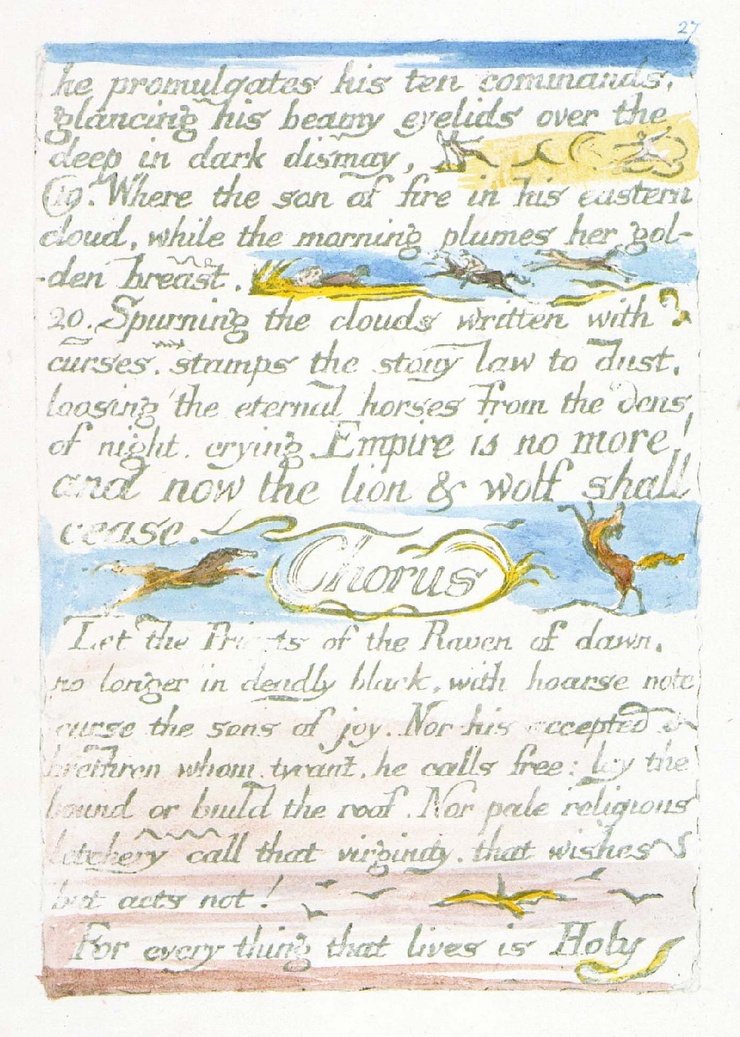 27
he promulgates his ten commands,
glancing his beamy eyelids over the
deep in dark dismay,
19. Where the son of fire in his eastern
cloud, while the morning plumes her gol-
-den breast.
20. Spurning the clouds written with
curses, stamps the stony law to dust,
loosing the eternal horses from the dens
of night, crying Empire is no more!
and now the lion & wolf shall
cease.
Chorus
Let the Priests of the Raven of dawn,
no longer in deadly black, with hoarse note
curse the sons of joy. Nor his accepted
brethren whom, tyrant, he calls free: lay the
bound or build the roof. Nor pale religious
letchery call that virginity, that wishes
but acts not!
For every thing that lives is Holy